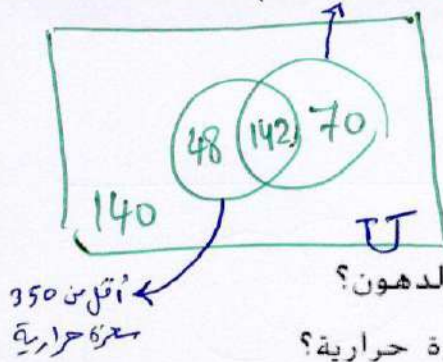 48 142 70
140
U
أقل من 350
سعرة حرارية
لدهون؟
ة حرارية؟